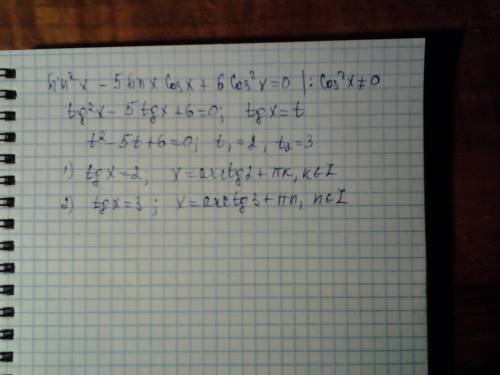 sin²x - 5 sin x cos x + 6 cos²x = 0 |: cos²x ≠ 0
tg²x - 5 tg x + 6 = 0; tg x = t
t² - 5t + 6 = 0; t₁ = 2, t₂ = 3
1) tg x = 2; x = arctg 2 + πk, k ∈ Z
2) tg x = 3; x = arctg 3 + πn, n ∈ Z